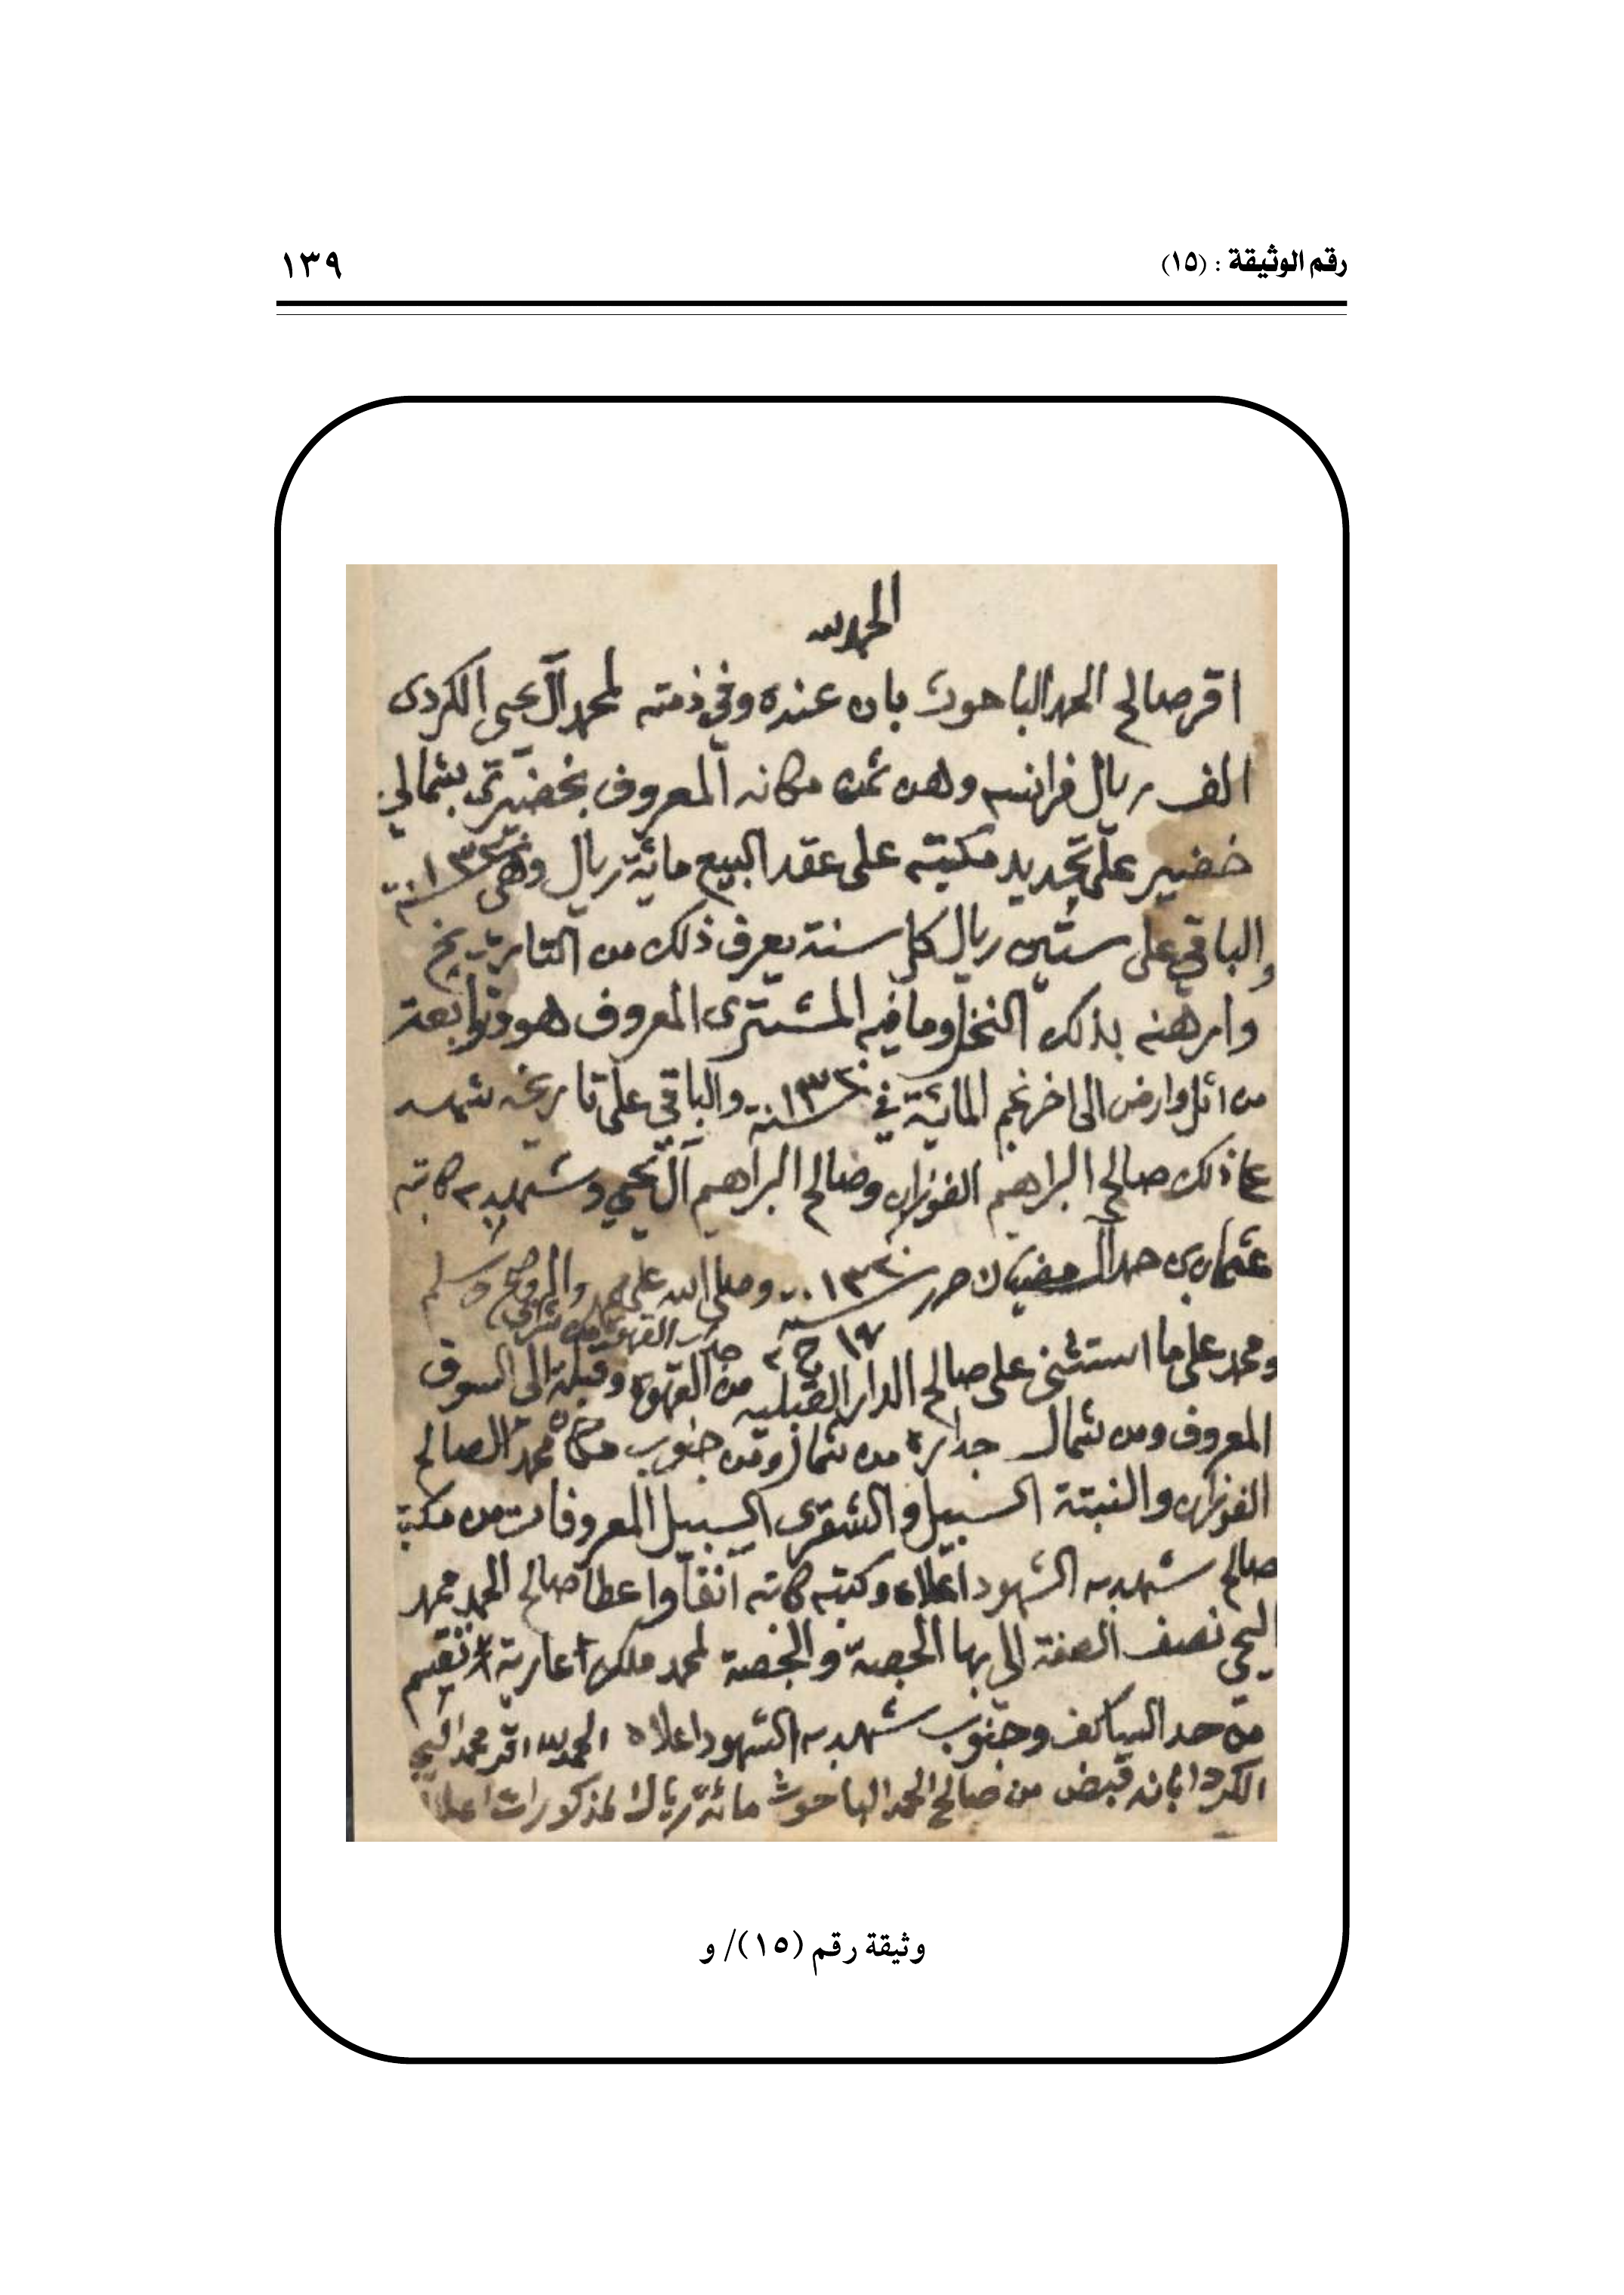 رقم الوثيقة : (١٥)
١٣٩
الحمد لله
اقر صالح الحمد الباحوث بان عنده وفي ذمته لمحمد آل يحيى الكردى
الف ريال فرانسه وهن ثمن مكانه المعروف بخضير بشمالي
خضير على تجديد مكيته على عقد البيع مائة ريال وهي سنة ١٣٢٠
والباقي على ستين ريال كل سنة يعرف ذلك من التاريخ
وارهنه بذلك النخل وما فيه المشترى المعروف هو وتوابعته
من اثل وارض الى اخر نجم المائية في سنة ١٣٢٠ والباقي على تاريخه شهد
على ذلك صالح البراهيم الفوزان وصالح البراهيم آل يحيى وشهد به كاتبه
عثمان بن حمد المضيان حرر سنة ١٣٢٠ وصلى الله على محمد واله وصحبه وسلم
١٧ ج ٢
ومحمد على ما استثنى على صالح الدار القبليه من القهوة وقبلة الى السوق
المعروف ومن شمال جداره من شمال ومن جنوب محمد الصالح
الفوزان والنبتة السبيل والشقرى السبيل المعروفات من مكيته
صالح شهد به الشهود اعلاه وكتبه كاتبه آنفا واعطا صالح الحمد محمد
اليحي نصف الصفة الى بها الجصة والجصة لمحمد ملك عارية
من حد الساكف وجنوب شهد به الشهود اعلاه الحمد لله اقر محمد اليحي
الكردا بانه قبض من صالح الحمد الباحوث مائة ريال المذكورات اعلاه
وثيقة رقم (١٥)/ و